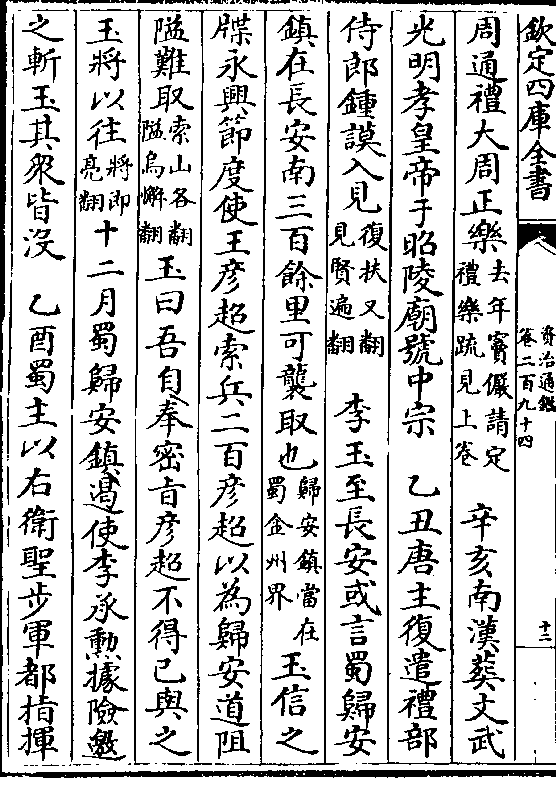 欽定四庫全書
資治通鑑
卷二百九十四
十二
周通禮大周正樂去年竇儼請定禮樂疏見上卷 辛亥南漢葬文武
光明孝皇帝于昭陵廟號中宗 乙丑唐主復遣禮部
侍郎鍾謨入見復扶又翻見賢遍翻 李玉至長安或言蜀歸安
鎮在長安南三百餘里可襲取也歸安鎮當在蜀金州界玉信之
牒永興節度使王彥超索兵二百彥超以為歸安道阻
隘難取索山各翻隘烏懈翻玉曰吾自奉密旨彥超不得已與之
玉將以往將即亮翻十二月蜀歸安鎮遏使李承勳據險邀
之斬玉其衆皆沒 乙酉蜀主以右衛聖步軍都指揮